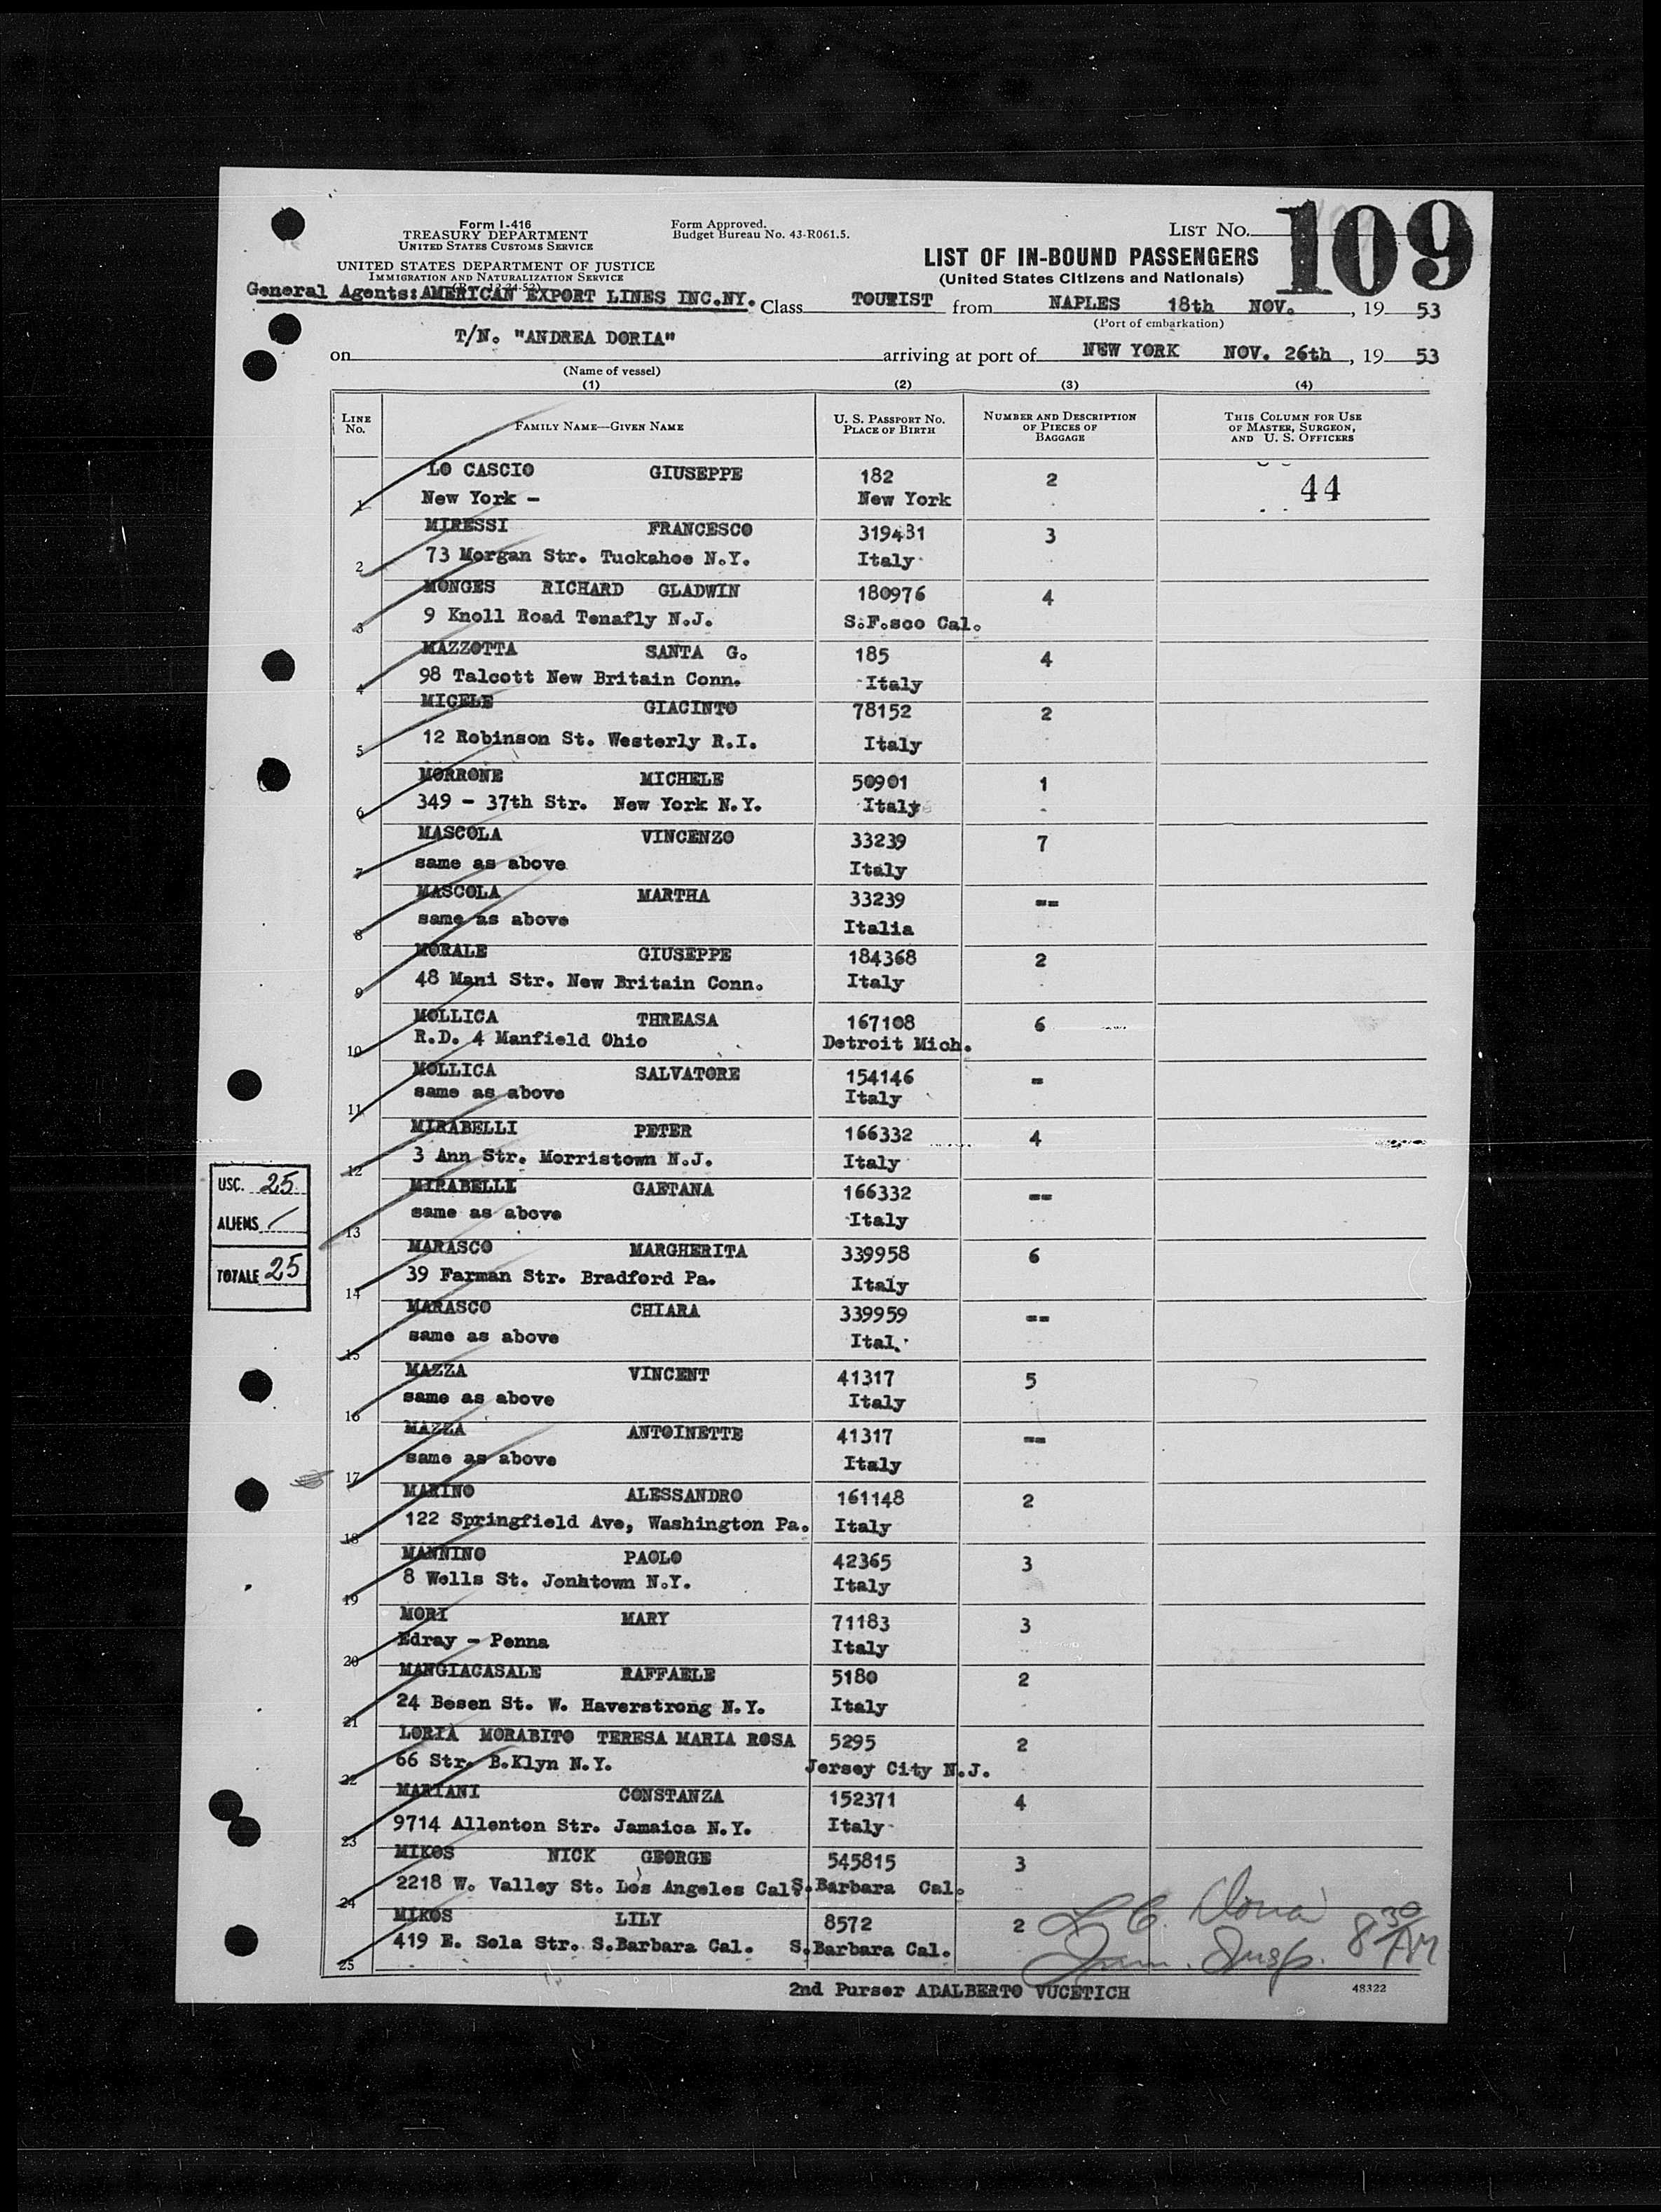 Form I-416
TREASURY DEPARTMENT
UNITED STATES CUSTOMS SERVICE
UNITED STATES DEPARTMENT OF JUSTICE
IMMIGRATION AND NATURALIZATION SERVICE
Form Approved.
Budget Bureau No. 43-R061.5.
LIST NO. 109
LIST OF IN-BOUND PASSENGERS
(United States Citizens and Nationals)
General Agents: AMERICAN EXPORT LINES INC.NY. Class TOURIST from NAPLES 18th NOV. , 19 53
(Port of embarkation)
on T/N. "ANDREA DORIA" arriving at port of NEW YORK NOV. 26th , 19 53
(Name of vessel)
(1) (2) (3) (4)
LINE No. FAMILY NAME—GIVEN NAME U. S. PASSPORT NO. PLACE OF BIRTH NUMBER AND DESCRIPTION OF PIECES OF BAGGAGE THIS COLUMN FOR USE OF MASTER, SURGEON, AND U. S. OFFICERS
LO CASCIO GIUSEPPE 182 2 44
1 New York - New York
MIRESSI FRANCESCO 319431 3
2 73 Morgan Str. Tuckahoe N.Y. Italy
MONGES RICHARD GLADWIN 180976 4
3 9 Knoll Road Tenafly N.J. S.F.sco Cal.
MAZZOTTA SANTA G. 185 4
4 98 Talcott New Britain Conn. Italy
MICELE GIACINTO 78152 2
5 12 Robinson St. Westerly R.I. Italy
MORRONE MICHELE 50901 1
6 349 - 37th Str. New York N.Y. Italy
MASCOLA VINCENZO 33239 7
7 same as above Italy
MASCOLA MARTHA 33239 --
8 same as above Italia
MORALE GIUSEPPE 184368 2
9 48 Mani Str. New Britain Conn. Italy
MOLLICA THREASA 167108 6
10 R.D. 4 Manfield Ohio Detroit Mich.
MOLLICA SALVATORE 154146 -
11 same as above Italy
MIRABELLI PETER 166332 4
12 3 Ann Str. Morristown N.J. Italy
MIRABELLI GAETANA 166332 --
13 same as above Italy
MARASCO MARGHERITA 339958 6
14 39 Farman Str. Bradford Pa. Italy
MARASCO CHIARA 339959 --
15 same as above Ital.
MAZZA VINCENT 41317 5
16 same as above Italy
MAZZA ANTOINETTE 41317 --
17 same as above Italy
MARINO ALESSANDRO 161148 2
18 122 Springfield Ave, Washington Pa. Italy
MANNINO PAOLO 42365 3
19 8 Wells St. Jonhtown N.Y. Italy
MORI MARY 71183 3
20 Edray - Penna Italy
MANGIACASALE RAFFAELE 5180 2
21 24 Besen St. W. Haverstrong N.Y. Italy
LORIA MORABITO TERESA MARIA ROSA 5295 2
22 66 Str. B.Klyn N.Y. Jersey City N.J.
MARIANI CONSTANZA 152371 4
23 9714 Allenton Str. Jamaica N.Y. Italy
MIKOS NICK GEORGE 545815 3
24 2218 W. Valley St. Los Angeles Cal. S.Barbara Cal.
MIKOS LILY 8572 2
25 419 E. Sola Str. S.Barbara Cal. S.Barbara Cal.
USC. 25
ALIENS /
TOTALE 25
Imm. Insp. 8 30 AM
2nd Purser ADALBERTO VUCETICH
48322